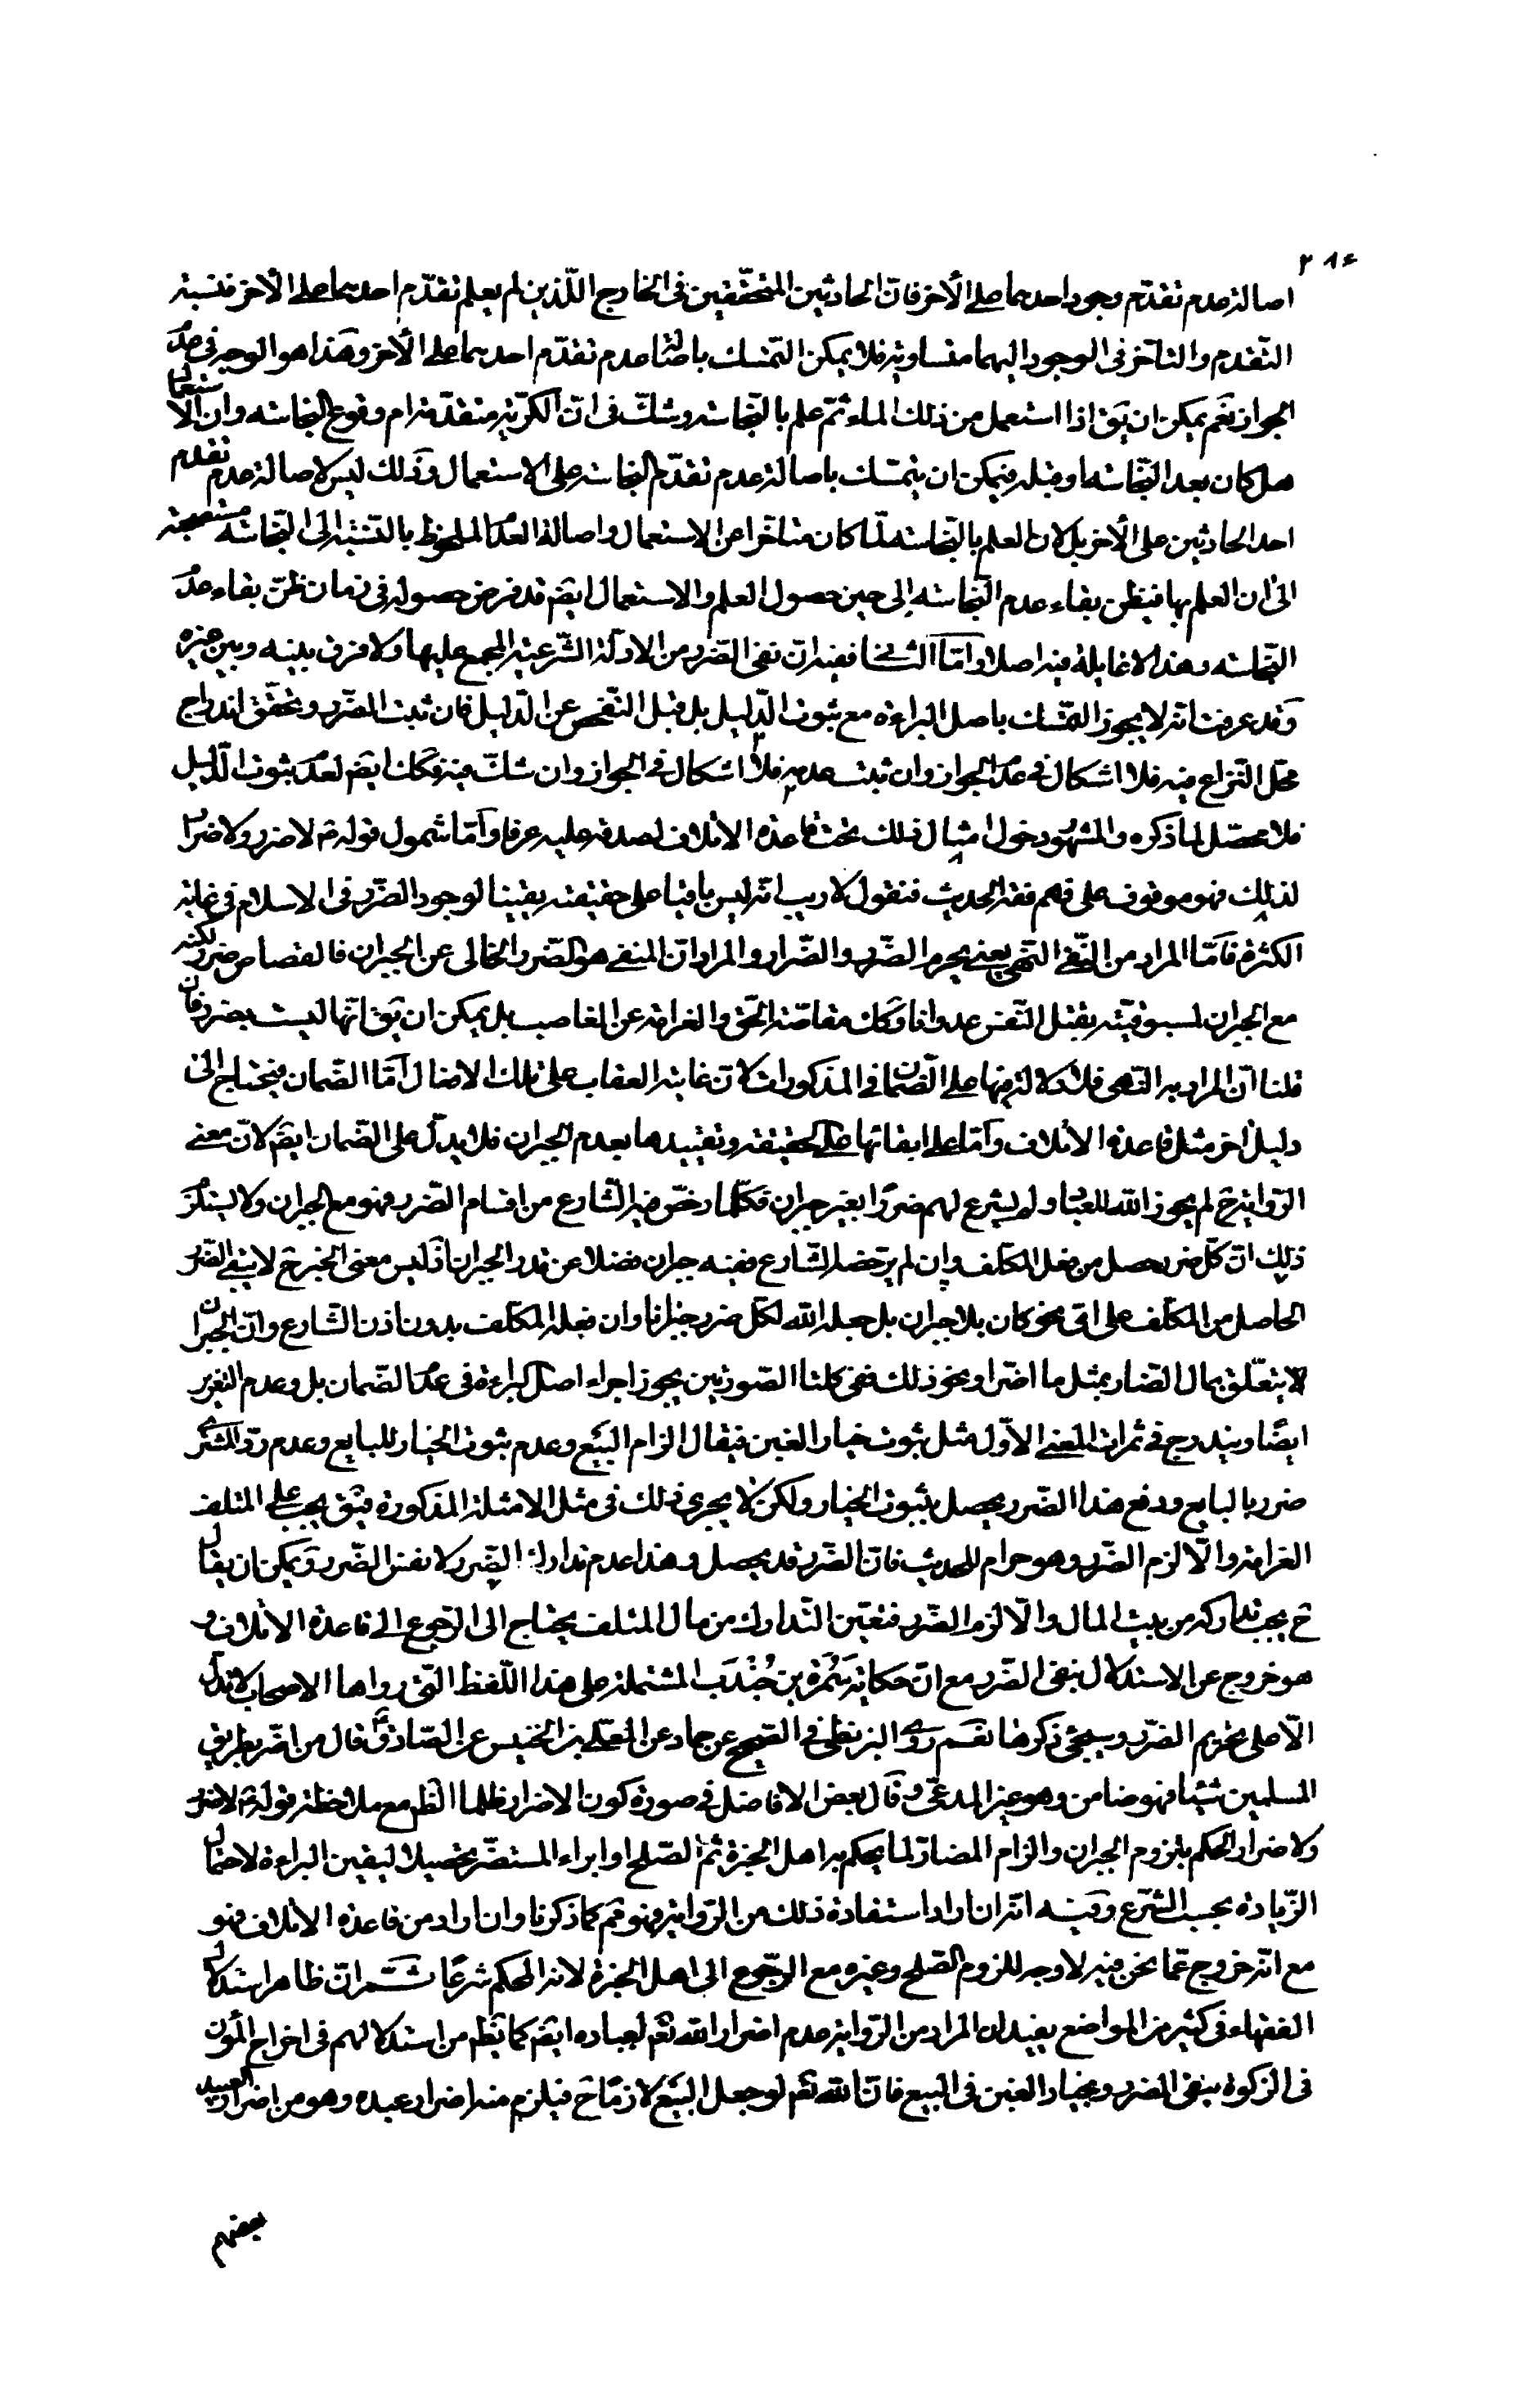 ٢١٤
اصالة عدم تقدّم وجود احدهما على الأخر فانّ الحادثين المتحقّقين فى الخارج اللّذين لم يعلم تقدّم احدهما على الأخر فنسبة
التّقدم والتاخّر فى الوجود اليهما متساوية فلا يمكن التمسّك باصالة عدم تقدّم احدهما على الأخر وهذا هو الوجه فى عدم
الجواز نعم يمكن ان يق اذا استعمل من ذلك الماء ثمّ علم بالنّجاسة وشكّ فى انّ الكرّية متقدّمة ام وقوع النجاسة وان الاستعمال
هل كان بعد النّجاسة او قبله فيمكن ان يتمسّك باصالة عدم تقدّم النجاسة على الاستعمال وذلك ليس لاصالة عدم تقدم
احد الحادثين على الأخر بل لان العلم بالنّجاسة لمّا كان متاخّرا عن الاستعمال واصالة العدم الملحوظ بالنّسبة الى النّجاسة مستصحبة
الى ان العلم بها فيظن بقاء عدم النّجاسة الى حين حصول العلم والاستعمال ايضم قد فرض حصوله فى زمان ظنّ بقاء عدم
النّجاسة وهذا لا غايلة فيه اصلا وامّا الثانى ففيه انّ نفى الضّرر من الادلّة الشّرعيّة المجمع عليها ولا فرق بينه وبين غيره
وقد عرفت انّه لا يجوز التمسّك باصل البراءة مع ثبوت الدّليل بل قبل التّفحص عن الدّليل فان ثبت الضّرر وتحقّق اندراج
محلّ النّزاع فيه فلا اشكال فى عدم الجواز وان ثبت عدمه فلا اشكال فى الجواز وان شكّ فيه فكك ايضم لعدم ثبوت الدّليل
فلا محصّل لما ذكره والمشهور دخول امثال ذلك تحت قاعدة الاتلاف لصدقه عليه عرفا وامّا شمول قوله لا ضرر ولا ضرار
لذلك فهو موقوف على فهم فقه الحديث فنقول لا ريب انّه ليس باقيا على حقيقته يقينا لوجود الضّرر فى الاسلام فى غاية
الكثرة فامّا المراد من النّفى النّهى يعنى يحرم الضّرر والضّرار والمراد انّ المنفى هو الضّرر الخالى عن الجبران فالقصاص ضرر لكنه
مع الجبران لمسبوقيّته بقتل النّفس عدوانا وكك مقاصّة الحقّ والغرامة عن الغاصب بل يمكن ان يق انّها ليست بضرر فان
قلنا انّ المراد به النّهى فلا دلالة فيها على الضّمان فى المذكورات لانّ غايته العقاب على تلك الافعال امّا الضّمان فيحتاج الى
دليل اخر مثل قاعدة الاتلاف وامّا على ابقائها على الحقيقة وتقييدها بعدم الجبران فلا يدلّ على الضّمان ايضم لانّ معنى
الرّواية ح لم يجوز الله للعباد ولم يشرع لهم ضررا بغير جبران فكلّما رخّص فيه الشّارع من اقسام الضّرر فهو مع الجبران ولا يستلزم
ذلك انّ كلّ ضرر يحصل من فعل المكلّف وان لم يرخّصه الشّارع ففيه جبران فضلا عن قدر الجبران اذ ليس معنى الخبر ح لا ينفى الضّرر
الحاصل من المكلّف على اىّ نحو كان بلا جبران بل جعل الله لكلّ ضرر جبرانا وان فعله المكلّف بدون اذن الشّارع وانّ الجبران
لا يتعلّق بمال الضّار بمثل ما اضرّ او نحو ذلك ففى كلتا الصّورتين يجوز اجراء اصل البراءة فى عدم الضّمان بل وعدم التعزير
ايضًا ويندرج فى ثمرات المعنى الاوّل مثل ثبوت خيار الغبن فيقال الزام البيع وعدم ثبوت الخيار للبايع وعدم ردّ المشترى
ضرر بالبايع ودفع هذا الضّرر يحصل بثبوت الخيار ولكن لا يجرى ذلك فى مثل الامثلة المذكورة فيق يجب على المتلف
الغرامة والّا لزم الضّرر وهو حرام للحديث فانّ الضّرر قد يحصل وهذا عدم تدارك الضّرر لا نفس الضّرر ويمكن ان يقال
ح يجب تداركه من بيت المال والّا لزم الضّرر فتعيّن التّدارك من مال المتلف يحتاج الى الرّجوع الى قاعدة الاتلاف و
هو خروج عن الاستدلال بنفى الضّرر مع انّ حكاية سَمُرَة بن جُنْدَب المشتملة على هذا اللّفظ الّتى رواها الاصحاب لا تدلّ
الّا على تحريم الضّرر وسيجئ ذكرها نعم روى البزنطى فى الصّحيح عن حماد عن المعلّى بن الخنيس عن الصّادق قال من اضرّ بطريق
المسلمين شيئا فهو ضامن وهو غير المدعى وقال بعض الافاضل فى صورة كون الاضرار ظلما الظم مع ملاحظة قوله لا ضرر
ولا ضرار الحكم بلزوم الجبران والزام المضارّ لما يحكم به اهل الخبرة ثمّ الصّلح او ابراء المستضرّ تحصيلا ليقين البراءة لاحتمال
الزّيادة بحسب الشّرع وفيه انّه ان اراد استفادة ذلك من الرّواية فهو فم كما ذكرنا وان اراد من قاعدة الاتلاف فهو
مع انّه خروج عمّا نحن فيه لا وجه للزوم الصّلح وغيره مع الرّجوع الى اهل الخبرة لانه المحكم شرعًا ثمّ انّ ظاهر استدلال
الفقهاء فى كثير من المواضع يفيد ان المراد من الرّواية عدم اضرار الله تعم لعباده ايضم كما يظم من استدلالهم فى اخراج المؤن
فى الزكوة بنفى الضرر وبخيار الغبن فى البيع فانّ الله تعم لو جعل البيع لازمًا ح فيلزم منه اضرار عبده وهو من اضرار العبيد
بعضهم